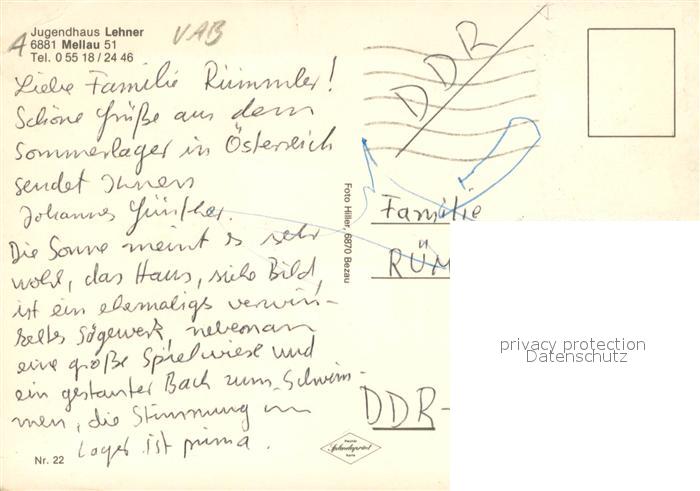 Jugendhaus Lehner
6881 Mellau 51
Tel. 0 55 18 / 24 46
A
VAB
Liebe Familie Rümmler!
Schöne Grüße aus dem
Sommerlager in Österreich
sendet Ihnen
Johannes Günther.
Die Sonne meint es sehr
wohl, das Haus, siehe Bild,
ist ein ehemaliges verwin-
keltes Sägewerk, nebenan
eine große Spielwiese und
ein gestauter Bach zum Schwim-
men, die Stimmung im
Lager ist prima.
Nr. 22
Foto Hiller, 6870 Bezau
DDR
Familie
RÜM
DDR-
privacy protection
Datenschutz